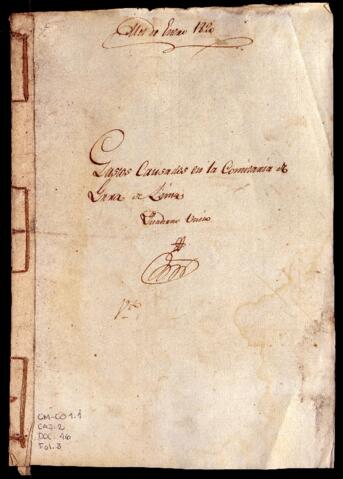 Mes de Enero 1820
Gastos Causados en la Comisaria de
Grra de Lima
Quaderno Unico
CM-CO 1.1
CAJ: 2
DOC: 46
Fol: 3